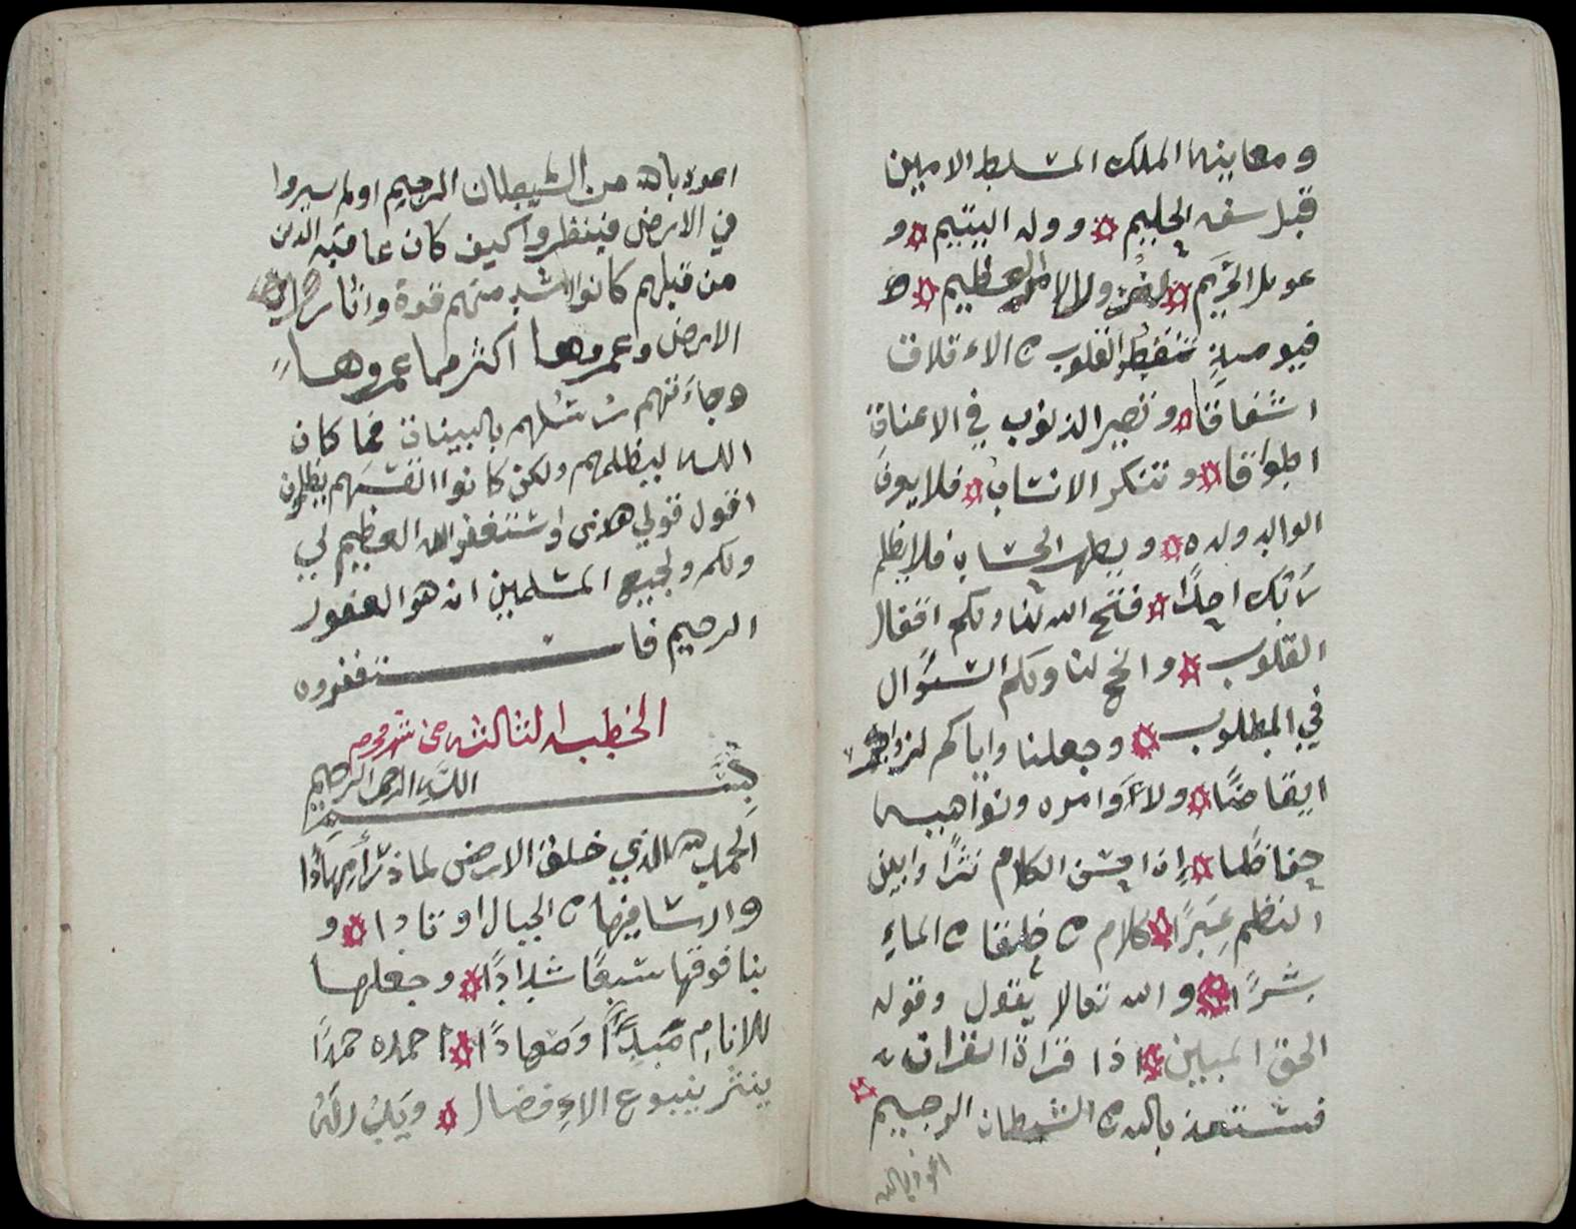 ومعاينة الملك المسلط الامين
قبل سفه الحليم ۞ ووله اليتيم ۞ و
عويل الحريم ۞ ولا العظيم ۞ ف
فيومىذٍ تتفطر القلوب الاء قلاق
اشفاقا ۞ وتصير الذنوب في الاعناق
اطواقا ۞ وتتنكر الانساب ۞ فلا يعرف
الوالد ولده ۞ ويظهر الحساب فلا يظلم
ربك احدًا ۞ فتح الله لنا ولكم اقفال
القلوب ۞ وانجح لنا ولكم السؤال
في المطلوب ۞ وجعلنا واياكم لزواجر
ايقاضًا ۞ ولأوامره ونواهيه
حفاظا ۞ إن احسن الكلام نثرًا وابين
النظم عِبَرًا ۞ كلام من خلق من الماءِ
بشرًا ۞ والله تعالا يقول وقوله
الحق المبين ۞ اذا قراة القران
فستعذ بالله من الشيطان الرجيم ۞
اعوذ بالله
اعوذ بالله من الشيطان الرجيم اولم سيروا
في الارض فينظروا كيف كان عاقبه الذين
من قبلهم كانوا اشد منهم قوة واثاروا
الارض وعمروها اكثر مما عمروها
وجاءتهم رسلهم بالبينات فما كان
الله ليظلمهم ولكن كانوا انفسهم يظلمون
اقول قولي هذى واستغفر الله العظيم لي
ولكم ولجميع المسلمين انه هو الغفور
الرحيم فاستغفروه
الخطبه الثالثه من شهر محرم
بسم الله الرحمن الرحيم
الحمد لله الذي خلق الارض لما ذرأ مهادًا
وارسا فيها من الجبال اوتادا ۞ و
بنا فوقها سبعًا شدادًا ۞ وجعلها
للانامِ مَبدَأً ومعادًا ۞ احمده حمدًا
ينبوع الاءِ فضال ۞